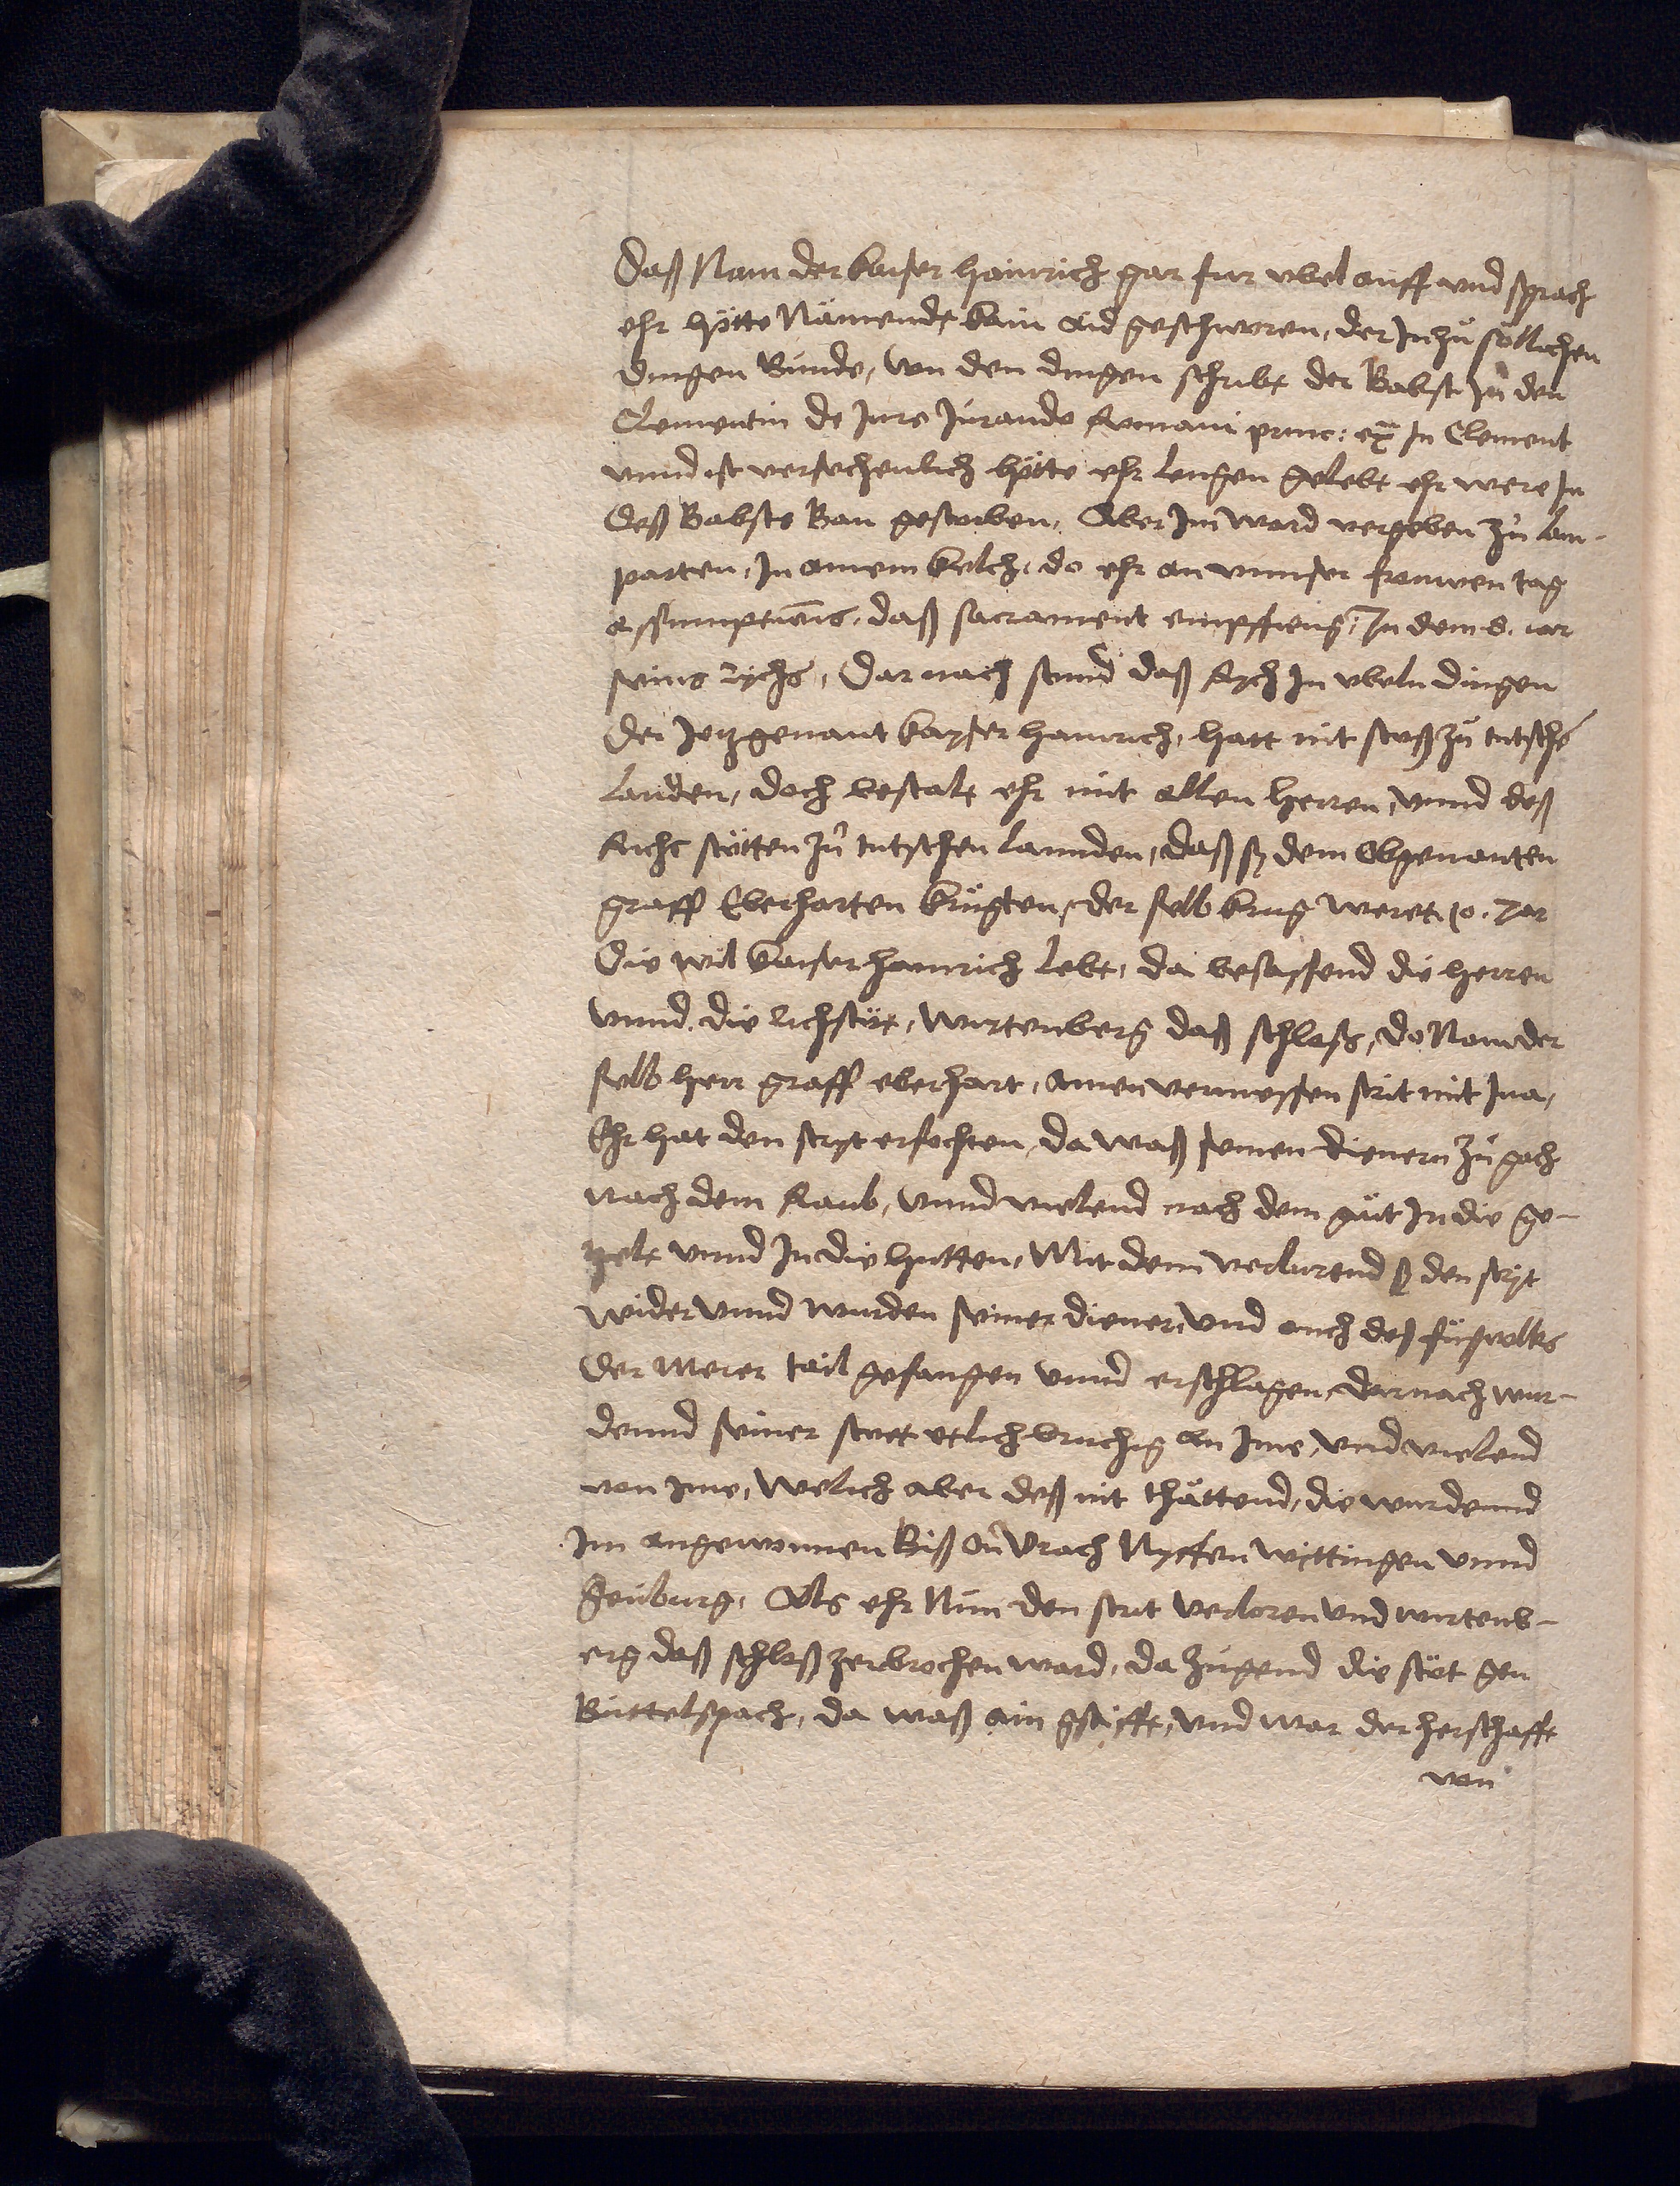 Daß Nam der kaiser hainrich gar fur vbel auff vnd sprach
ehr hötte Nämende kain aid geschworen, der In zů söllichen
dingen Bunde, von den dingen schribt der Babst In den
Clementin de Jure Jurando Romani princ: ex In Clement
vnnd ist versechenlich hötte ehr lengen gelebt ehr were In
deß Babsts Ban gestorben, Aber Im ward vergeben zů lam-
parten, In ainem kelch, do ehr an vnnser frouwen tag
assumptionis, daß sacrament empffieng, In dem 8. iar
seins rychs, Dar nach stund daß Rych In vbeln dingen
Der Jetzgenant kayser hainrich, hatt nit stuß zů tutsche
landen, doch bestalt ehr mit allen herren, vnnd deß
Richs stötten zů tutschen lannden, daß sy dem Obgenanten
graff Eberharten kruͤgten, der selb krug weret 10. Jar
Die wil kaiser hainrich lebt, da besassend die herren
vnnd die richstöt, Wirtenberg daß schloß, do Nam der
selb herr graff eberhart, ainen vermessen strit mit Ina,
Ehr hat den stryt erfochten, da waß seinen dienern zů gach
nach dem Raub, vnnd vielend nach dem gůt In die ge-
zelt vnnd In die hutten, Mit dem verlurend sy den stryt
wider vnnd wurden seiner diener, vnd auch deß fůßvolks
Der merer tail gefangen vnnd erschlagen, darnach wur-
dennd seiner stett etlich bruchig an Ime, vnd vielend
von Ime, Welich aber deß nit thättend, die wurdennd
Im angewonnen Biß On Vrach Nyffen Wittingen vnnd
Seuburg, Als ehr Nun den strit verloren vnd wirtenb-
erg daß schloß zerbrochen ward, da zugend die stöt gen
Buttelspach, da waß ain gstifft, vnd war der herschafft
von